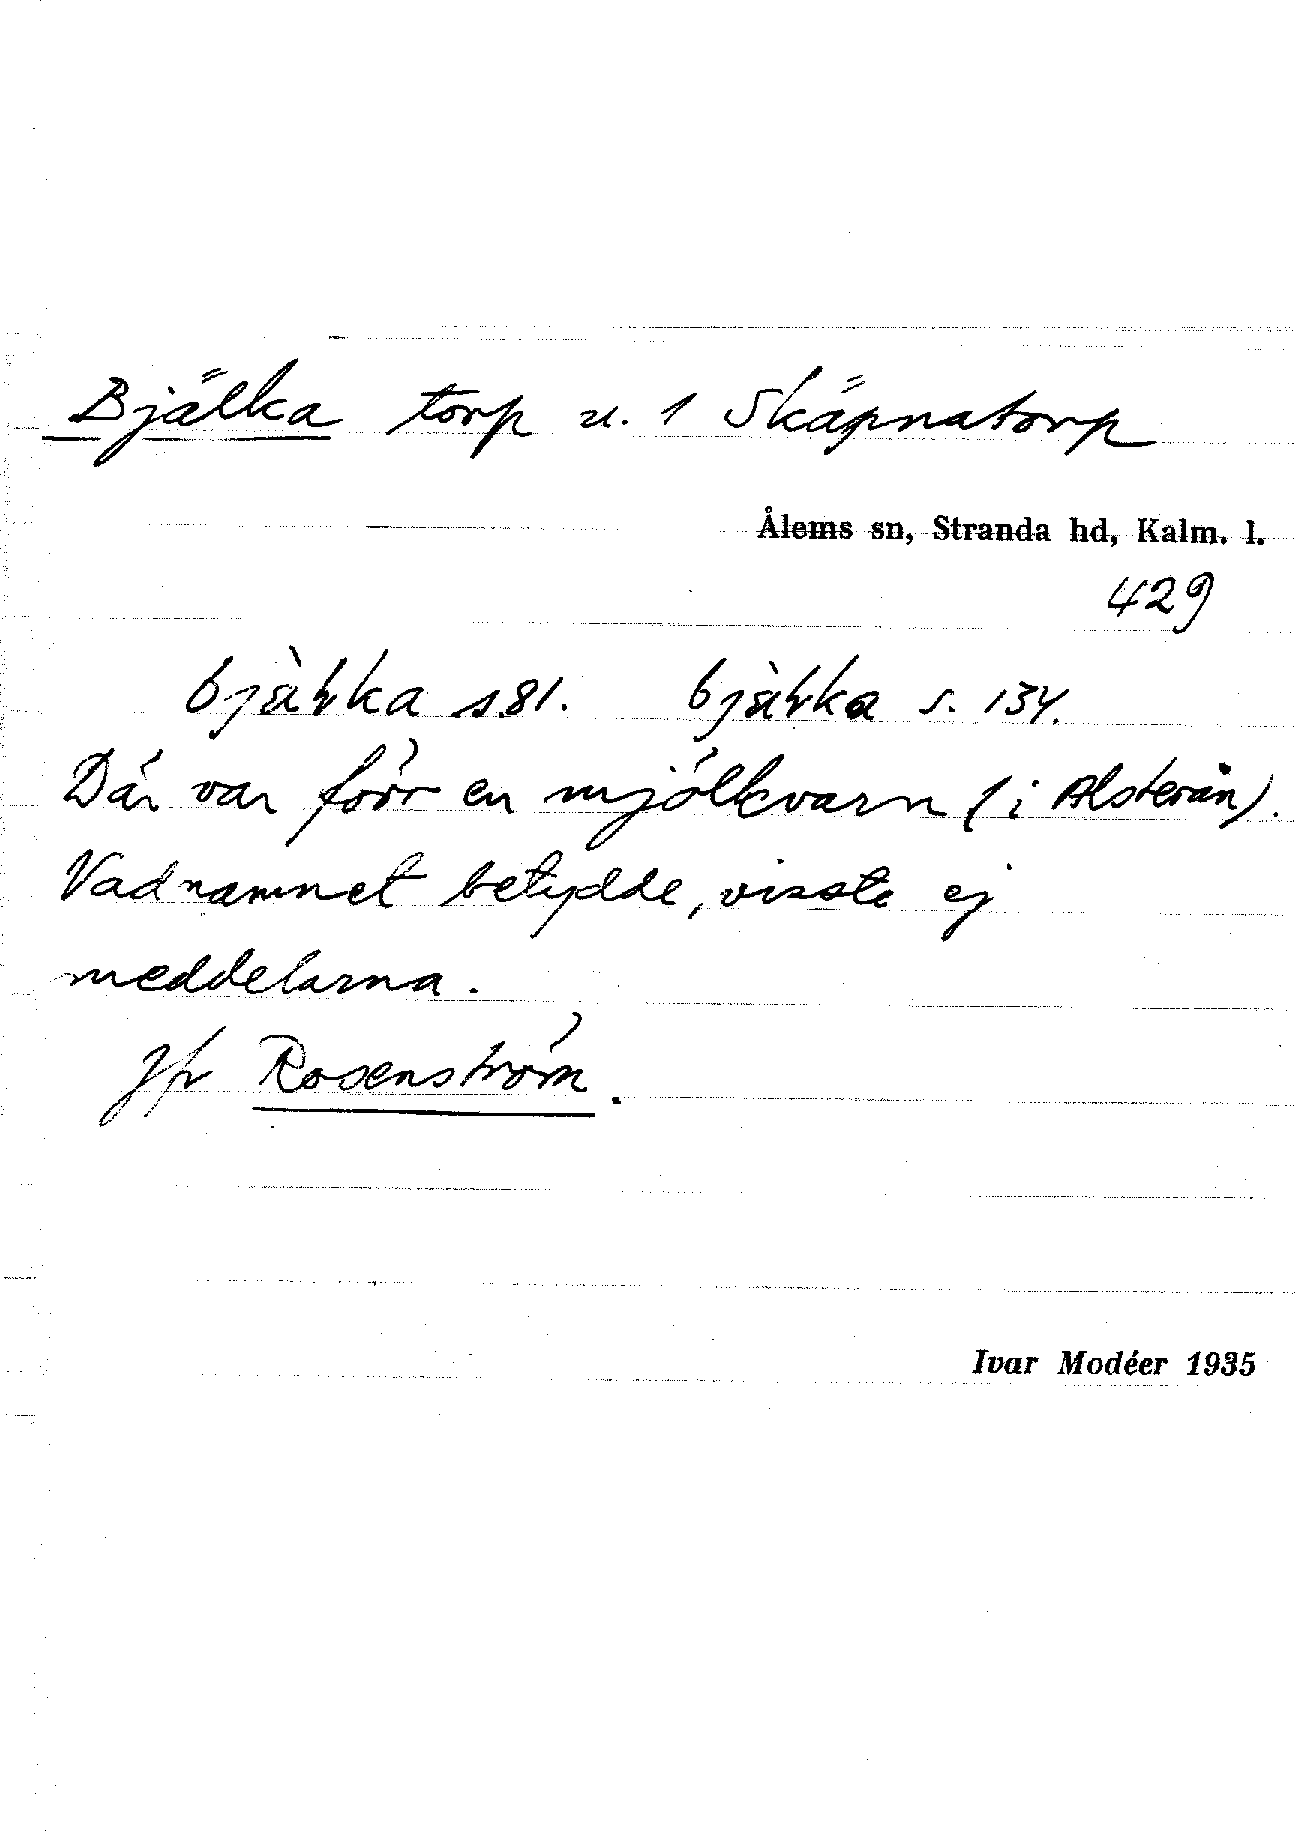 Bjälka torp u. 1 Skäpnatorp
Ålems sn, Stranda hd, Kalm. l.
429
s 81. s. 134.
Där var förr en mjölkvarn (i Alsterån).
Vad namnet betydde, visste ej
meddelarna.
Jfr Rosenström.
Ivar Modéer 1935